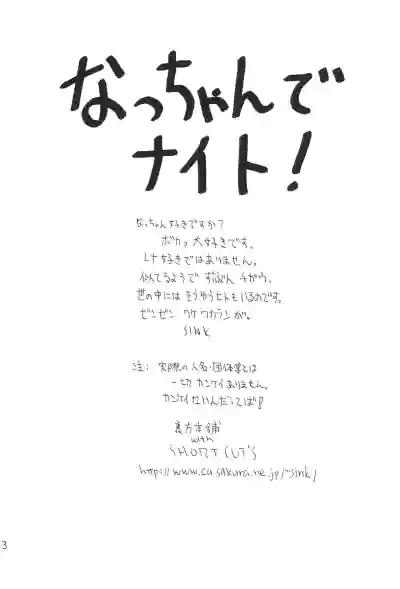 なっちゃんで
ナイト!
なっちゃん好きですか?
ボカァ大好きです。
レナ好きではありません。
似てるようで ずいぶん ちがう。
世の中には そうゆうヒトもいるのです。
ゼンゼン ワケワカランが。
SINK
注: 実際の人名・団体等とは
一切 カンケイありません。
カンケイないんだってば!
裏方本舗
with
SHORT CUT'S
http://www.ca.sakura.ne.jp/~sink/
3